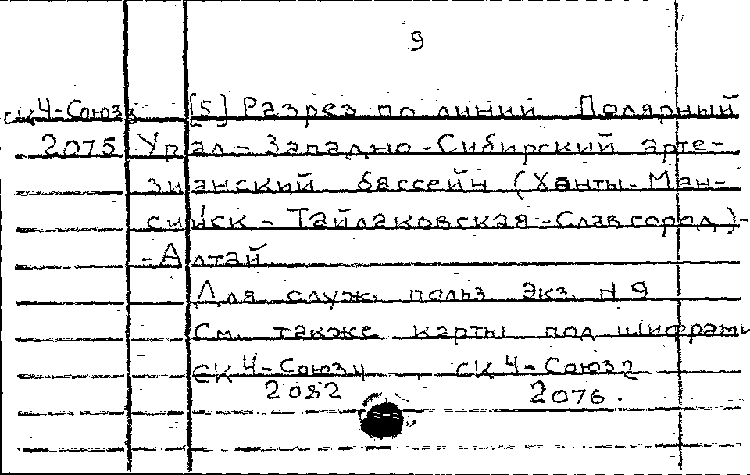 9
СК4-Союз [5] Разрез по линий Полярный
2075 Урал - Западно-Сибирский арте-
зианский бассейн (Ханты-Ман-
сийск - Тайлаковская - Славгород)-
-Алтай
Для служ. польз Экз. N 9
См. также карты под шифрами
СК 4-Союз4 , СК 4-Союз2
2082 2076.